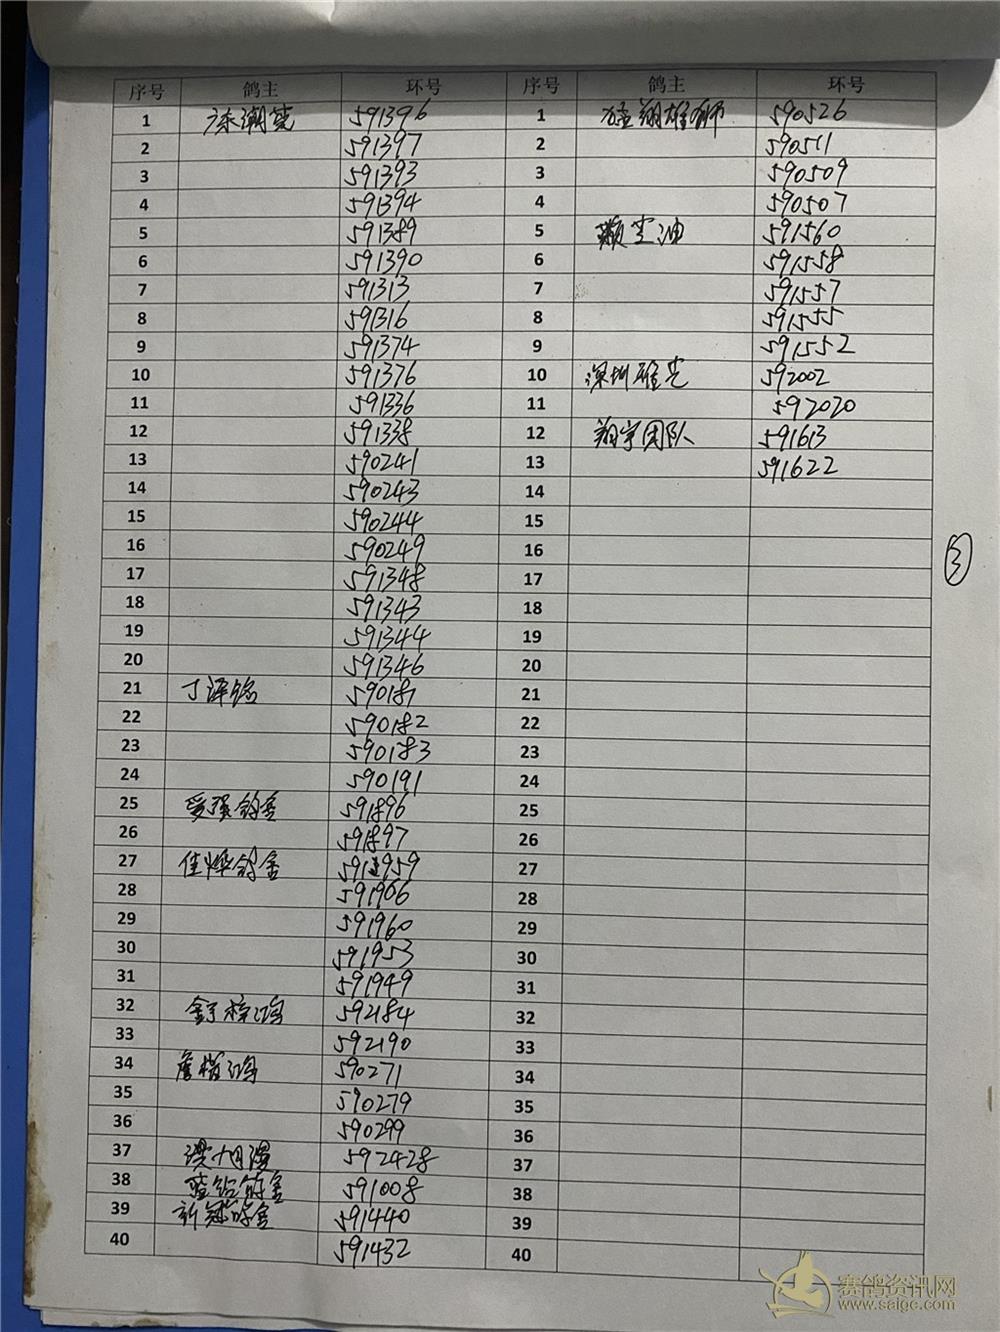 序号 鸽主 环号 序号 鸽主 环号
1 591396 1 590526
2 591397 2 590511
3 591393 3 590509
4 591394 4 590507
5 591389 5 591560
6 591390 6 591558
7 591313 7 591557
8 591316 8 591555
9 591374 9 591552
10 591376 10 深圳 592002
11 591336 11 592020
12 591338 12 翔宇团队 591613
13 590241 13 591622
14 590243 14
15 590244 15
16 590249 16
17 591348 17
18 591343 18
19 591344 19
20 591346 20
21 丁泽铭 590181 21
22 590182 22
23 590183 23
24 590191 24
25 爱强鸽舍 591896 25
26 591897 26
27 佳烨鸽舍 27
28 591906 28
29 591960 29
30 591953 30
31 591949 31
32 592184 32
33 592190 33
34 590271 34
35 590279 35
36 590299 36
37 592428 37
38 鸽舍 591008 38
39 新冠鸽舍 591440 39
40 591432 40
3
赛鸽资讯网
www.saige.com